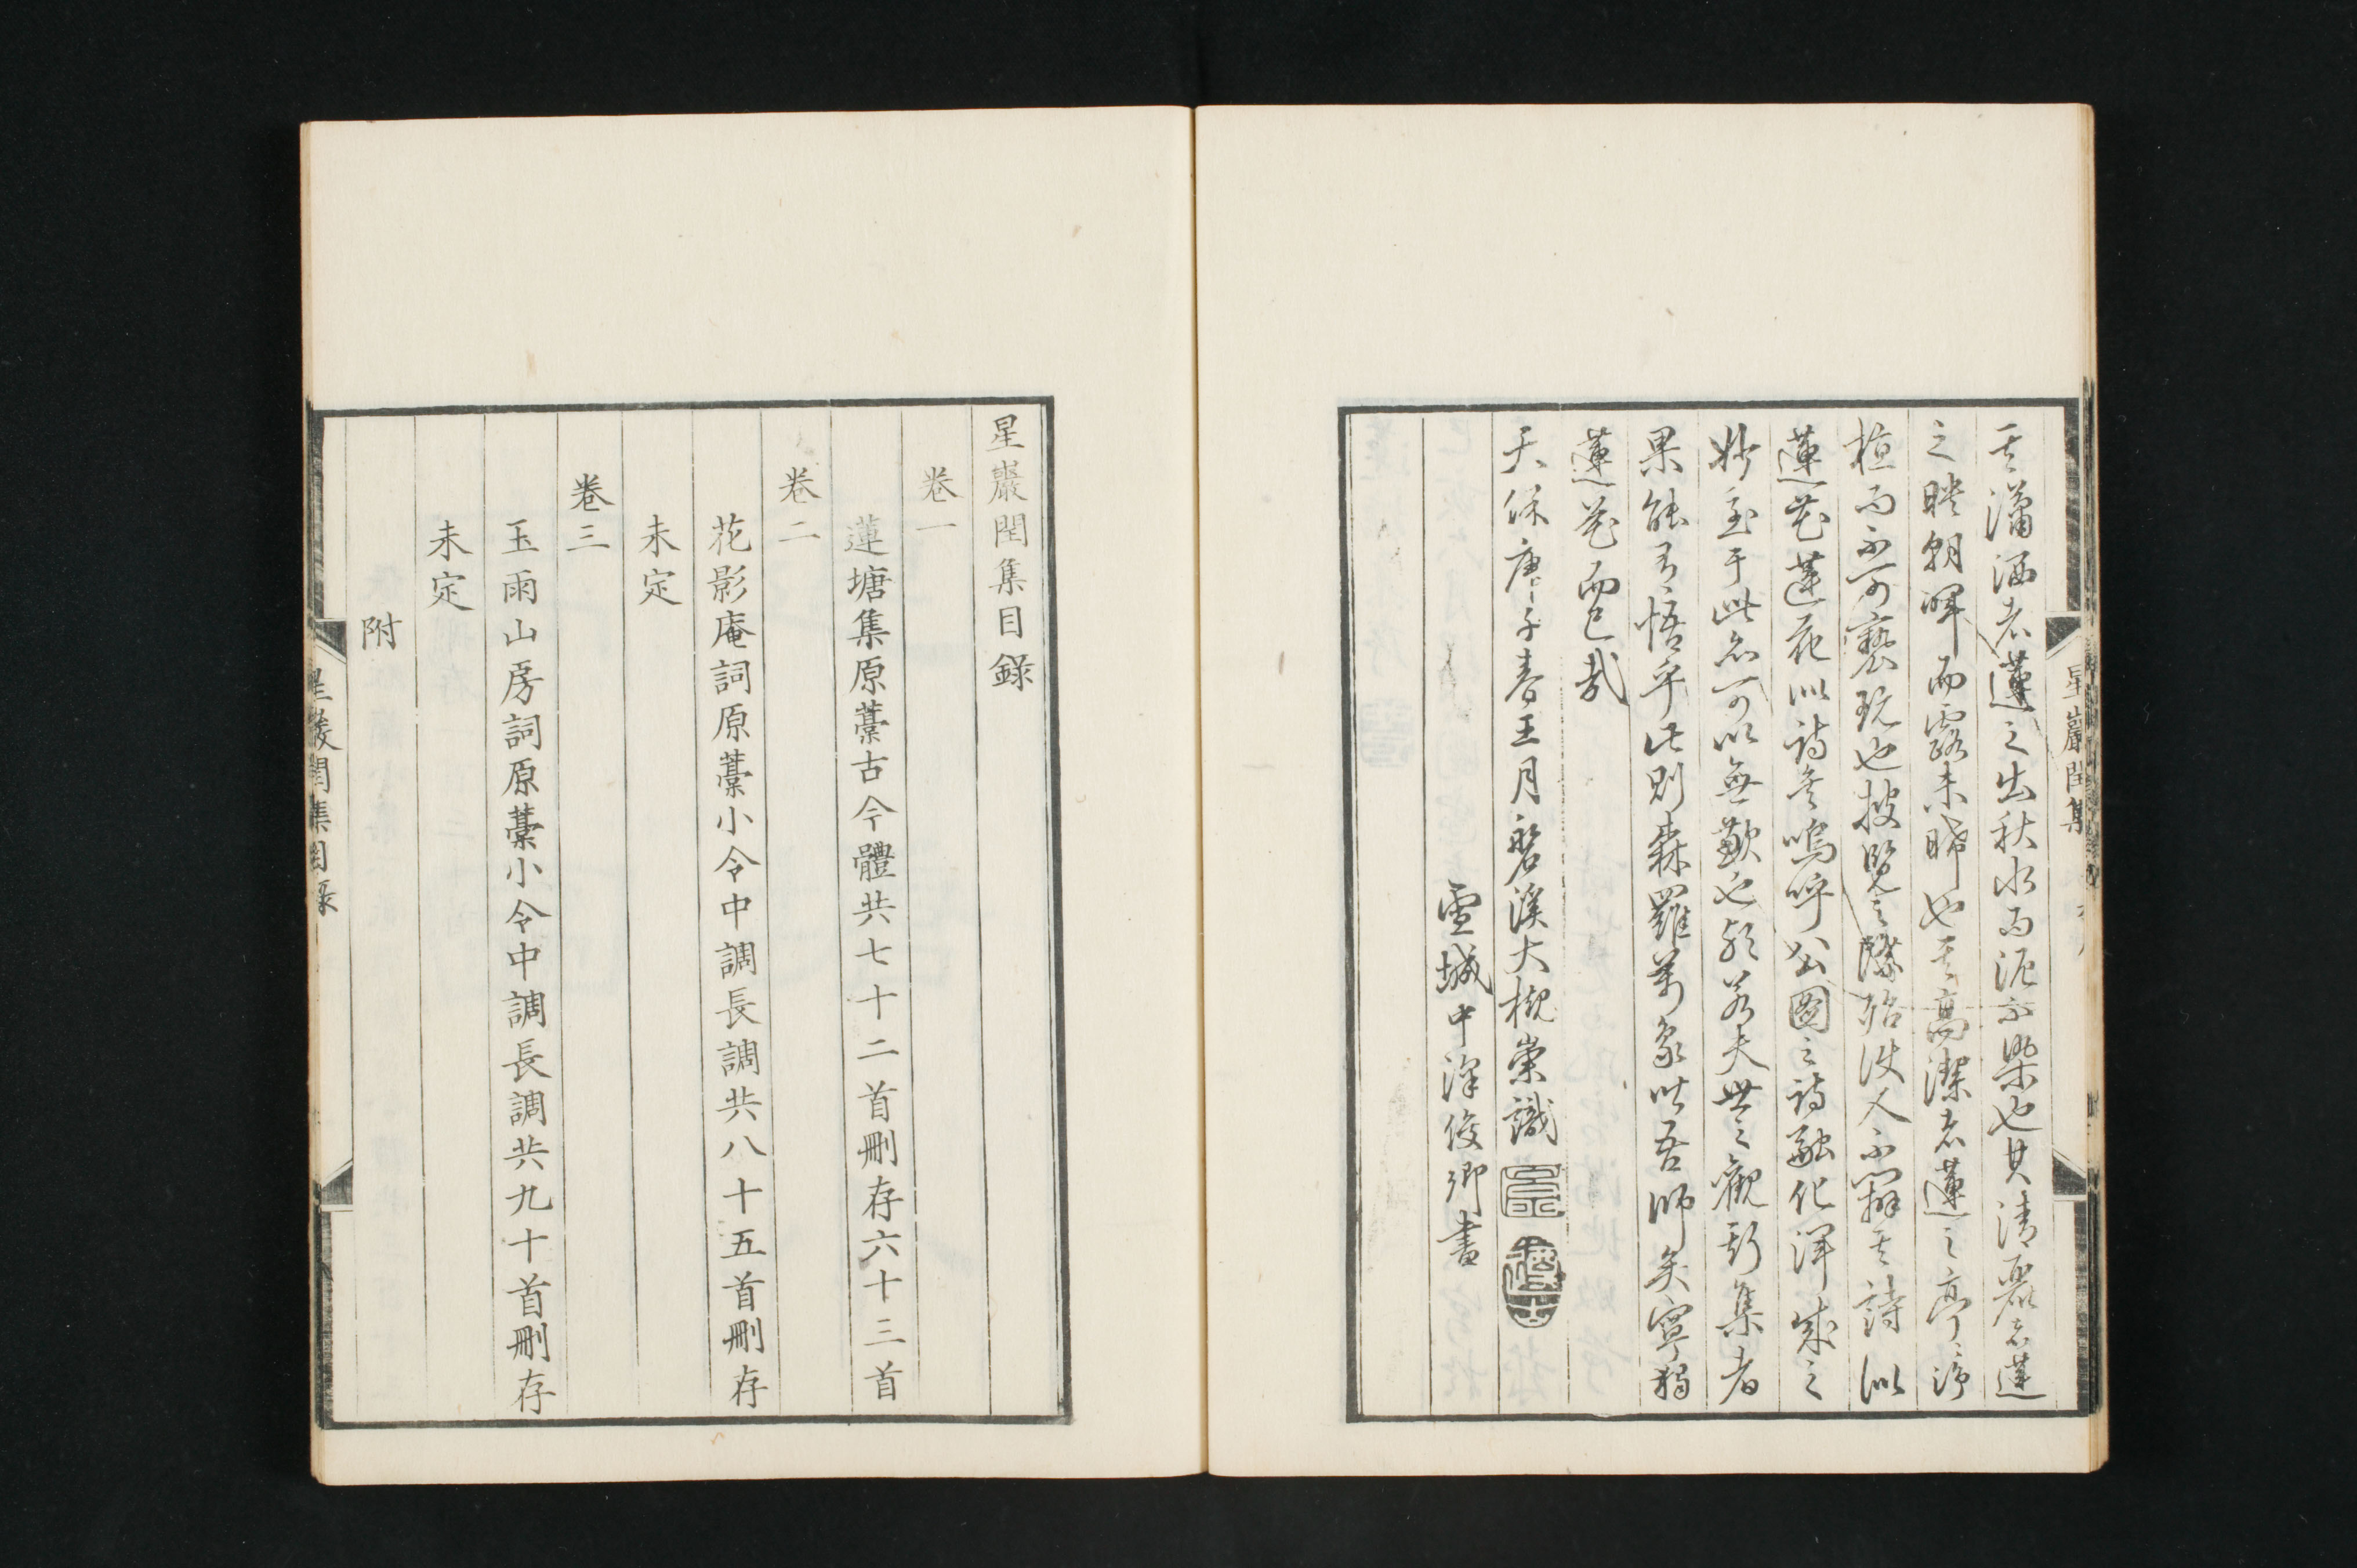 其瀟洒者蓮之出秋水而泥不染也其清麗者蓮
之映朝暉而露未晞也其高潔者蓮之亭〻淨
植而不可褻玩也披覽之際殆使人不辨其詩似
蓮花蓮花似詩矣嗚呼公圖之詩融化渾成之
妙至于此亦可以無歎也於若夫世之觀斯集者
果能有悟乎此則森羅萬象皆吾師矣寧獨
蓮花而已哉
天保庚子春王月磐溪大槻崇識
雪城中澤俊卿書
星巖閏集
星巖閏集目錄
卷一
蓮塘集原藁古今體共七十二首刪存六十三首
卷二
花影庵詞原藁小令中調長調共八十五首刪存
未定
卷三
玉雨山房詞原藁小令中調長調共九十首刪存
未定
附
星巖閏集目錄